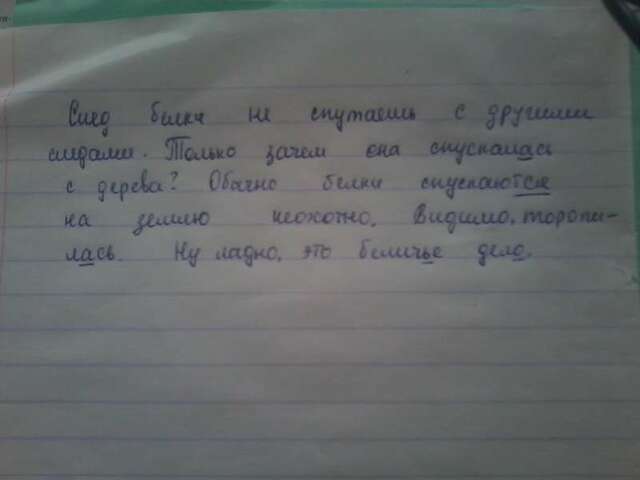 След белки не спутаешь с другими
следами. Только зачем она спускалась
с дерева? Обычно белки спускаются
на землю неохотно. Видимо, торопи-
лась. Ну ладно, это беличье дело.